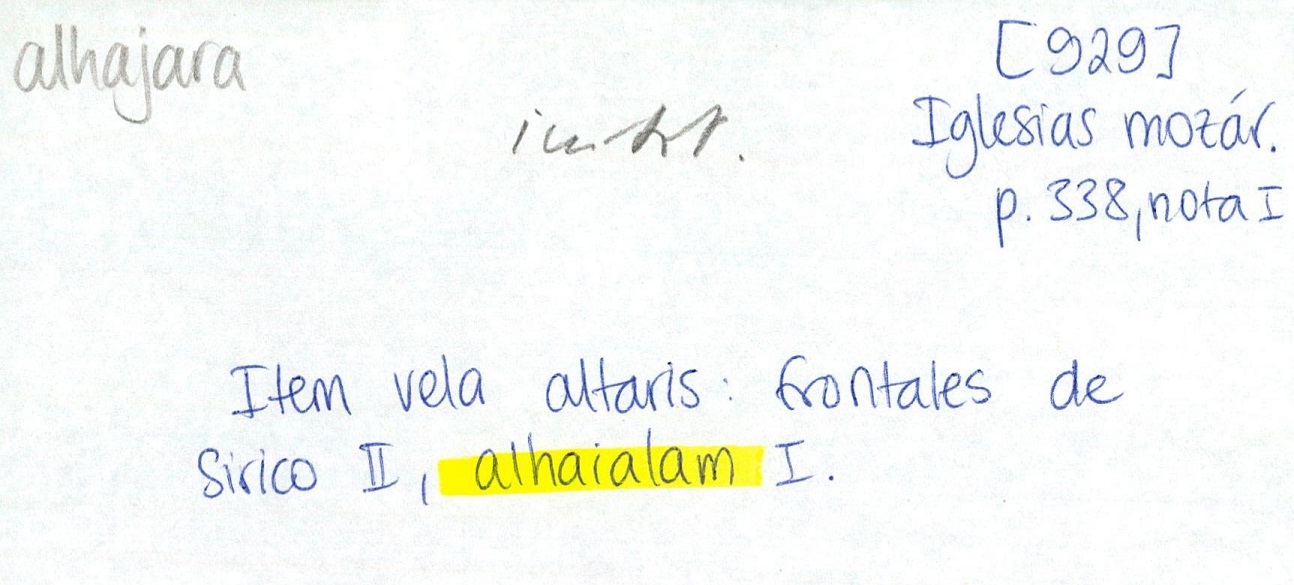 alhajara
[929]
Iglesias mozár.
p. 338, nota I
Item vela altaris: frontales de
Sirico II, alhaialam I.